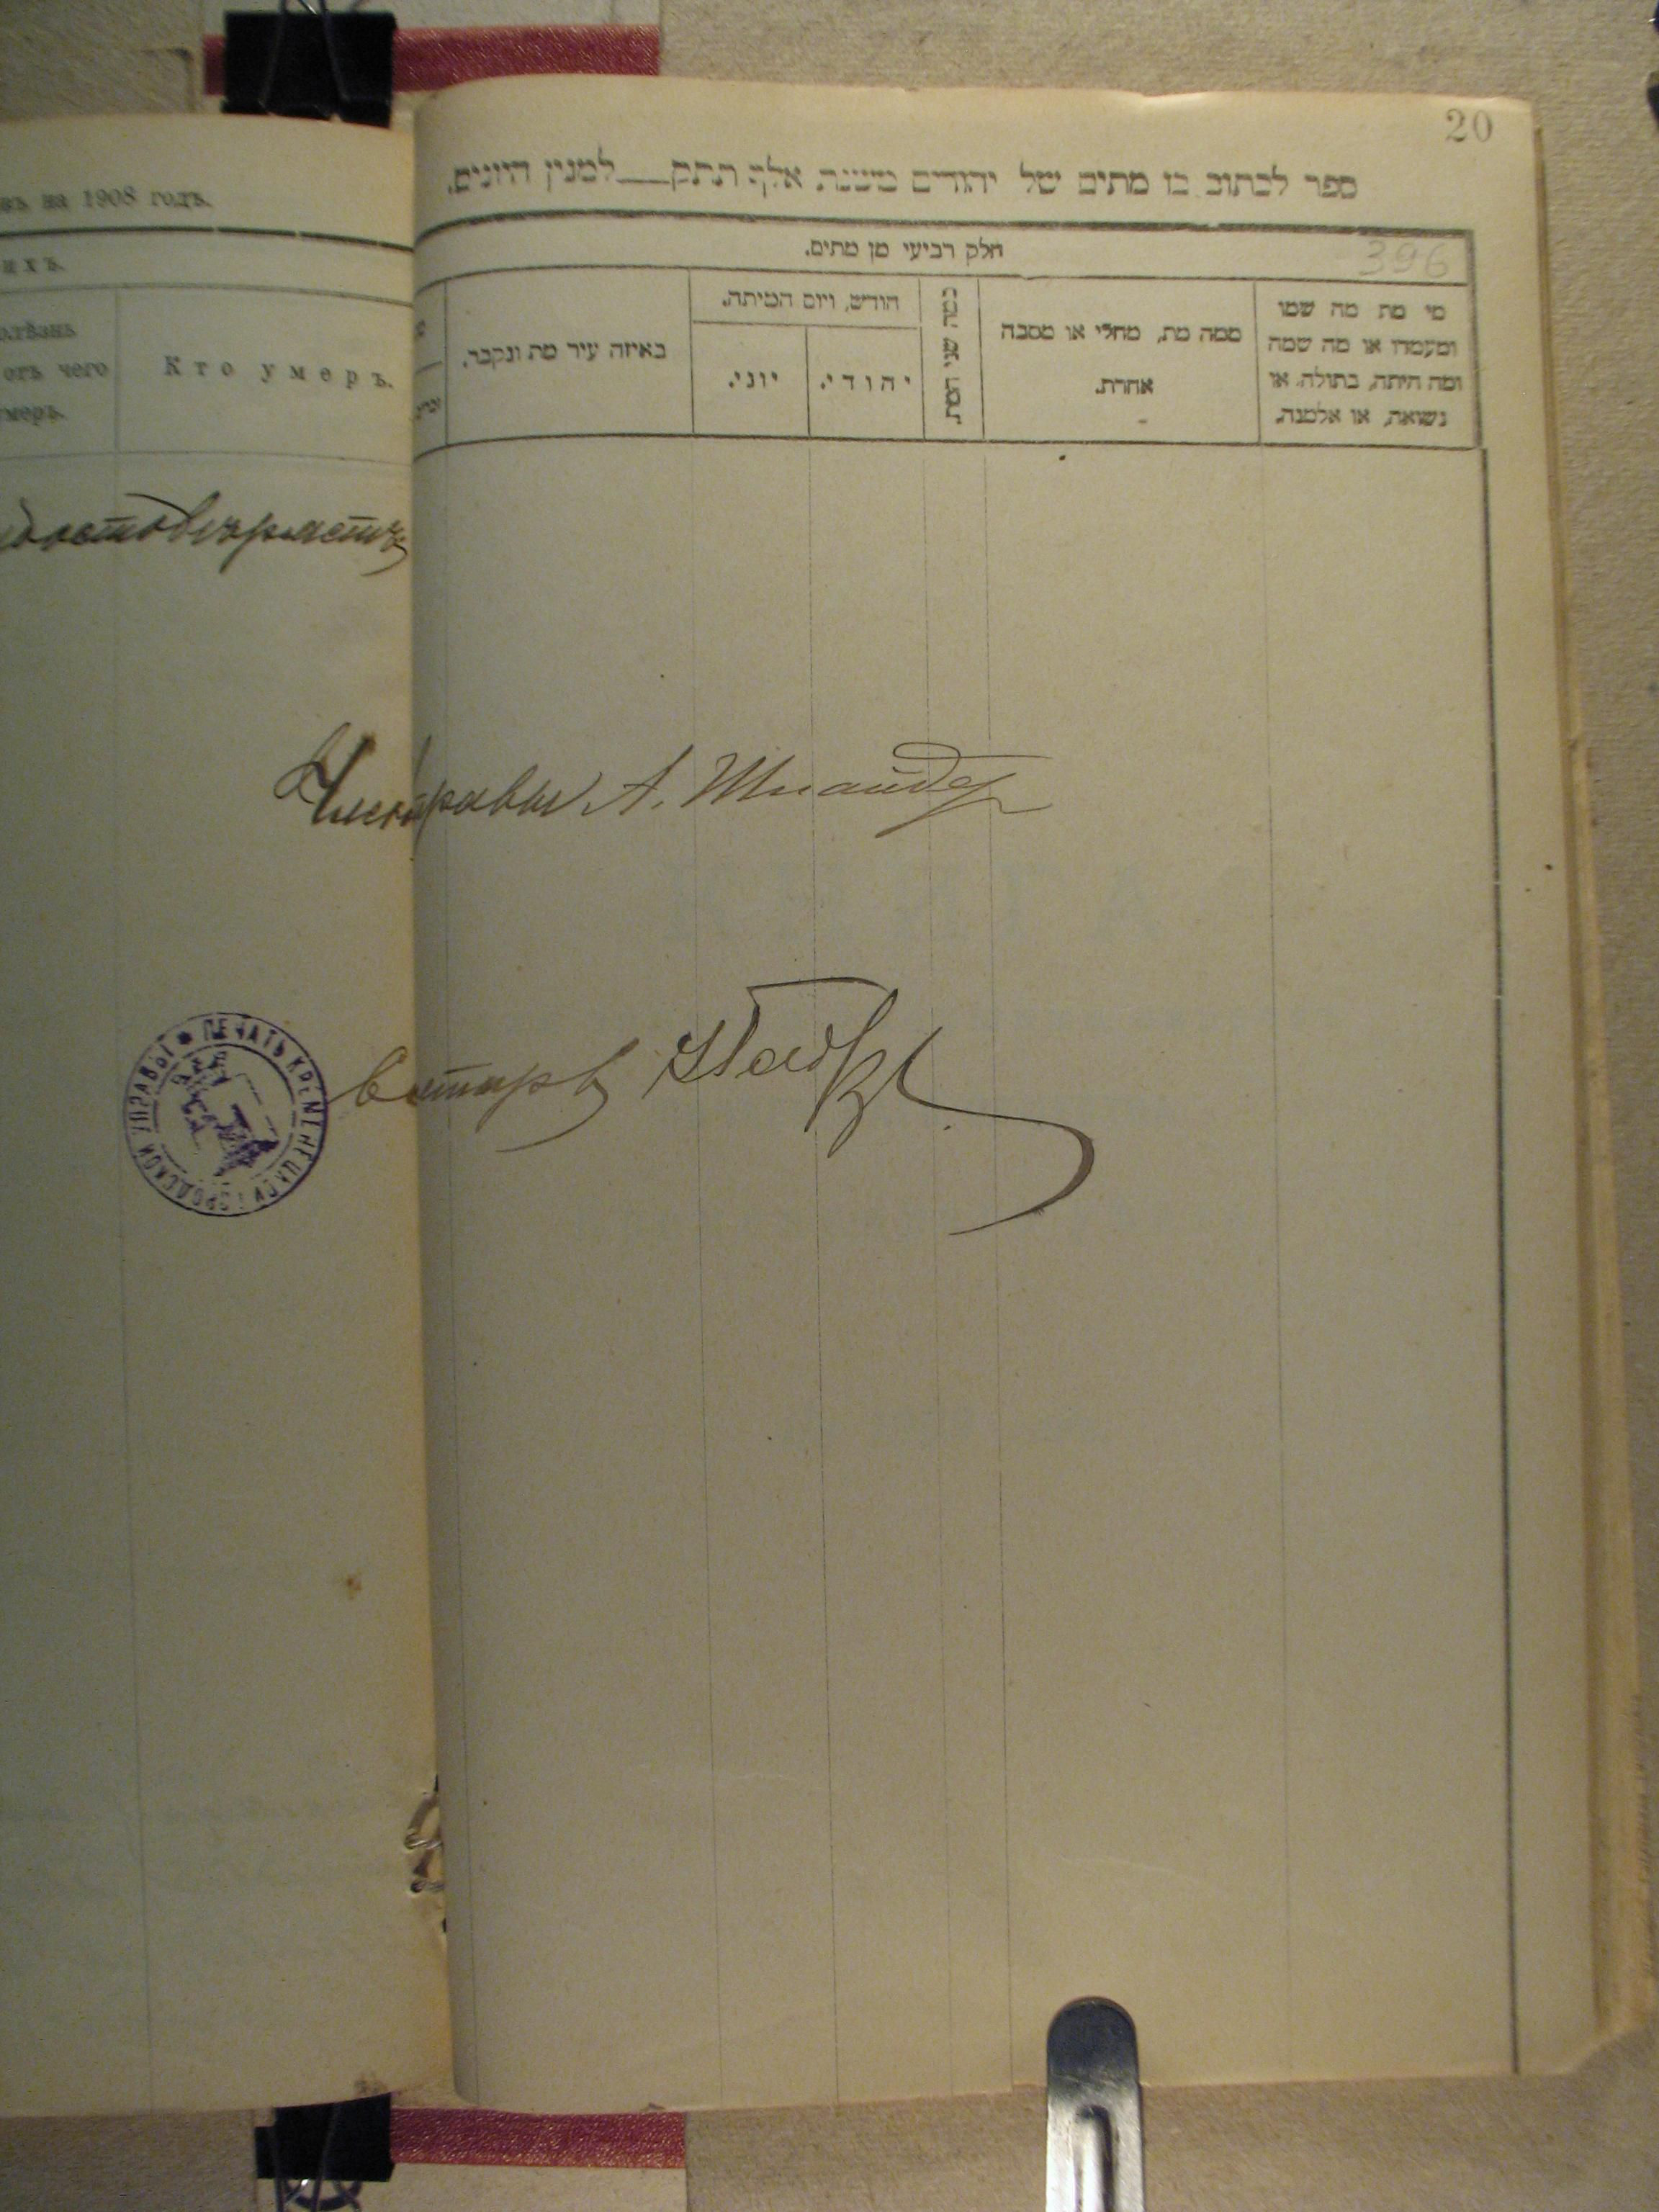 въ на 1908 годъ.
ихъ.
олѣзнь
отъ чего
умеръ.
Кто умеръ.
20
ספר לכתוב בו מתים של יהודים משנת אלף תתק___למנין היונים.
396
חלק רביעי מן מתים.
מי מת מה שמו
ומעמדו או מה שמה
ומה היתה, בתולה, או
נשואה, או אלמנה.
ממה מת, מחלי או מסבה
אחרת.
כמה שני המת.
חודש, ויום המיתה.
יהודי.
יוני.
באיזה עיר מת ונקבר.
Управы А. Шнайдер
ПЕЧАТЬ КРЕМЕНЕЦКОЙ ГОРОДСКОЙ УПРАВЫ